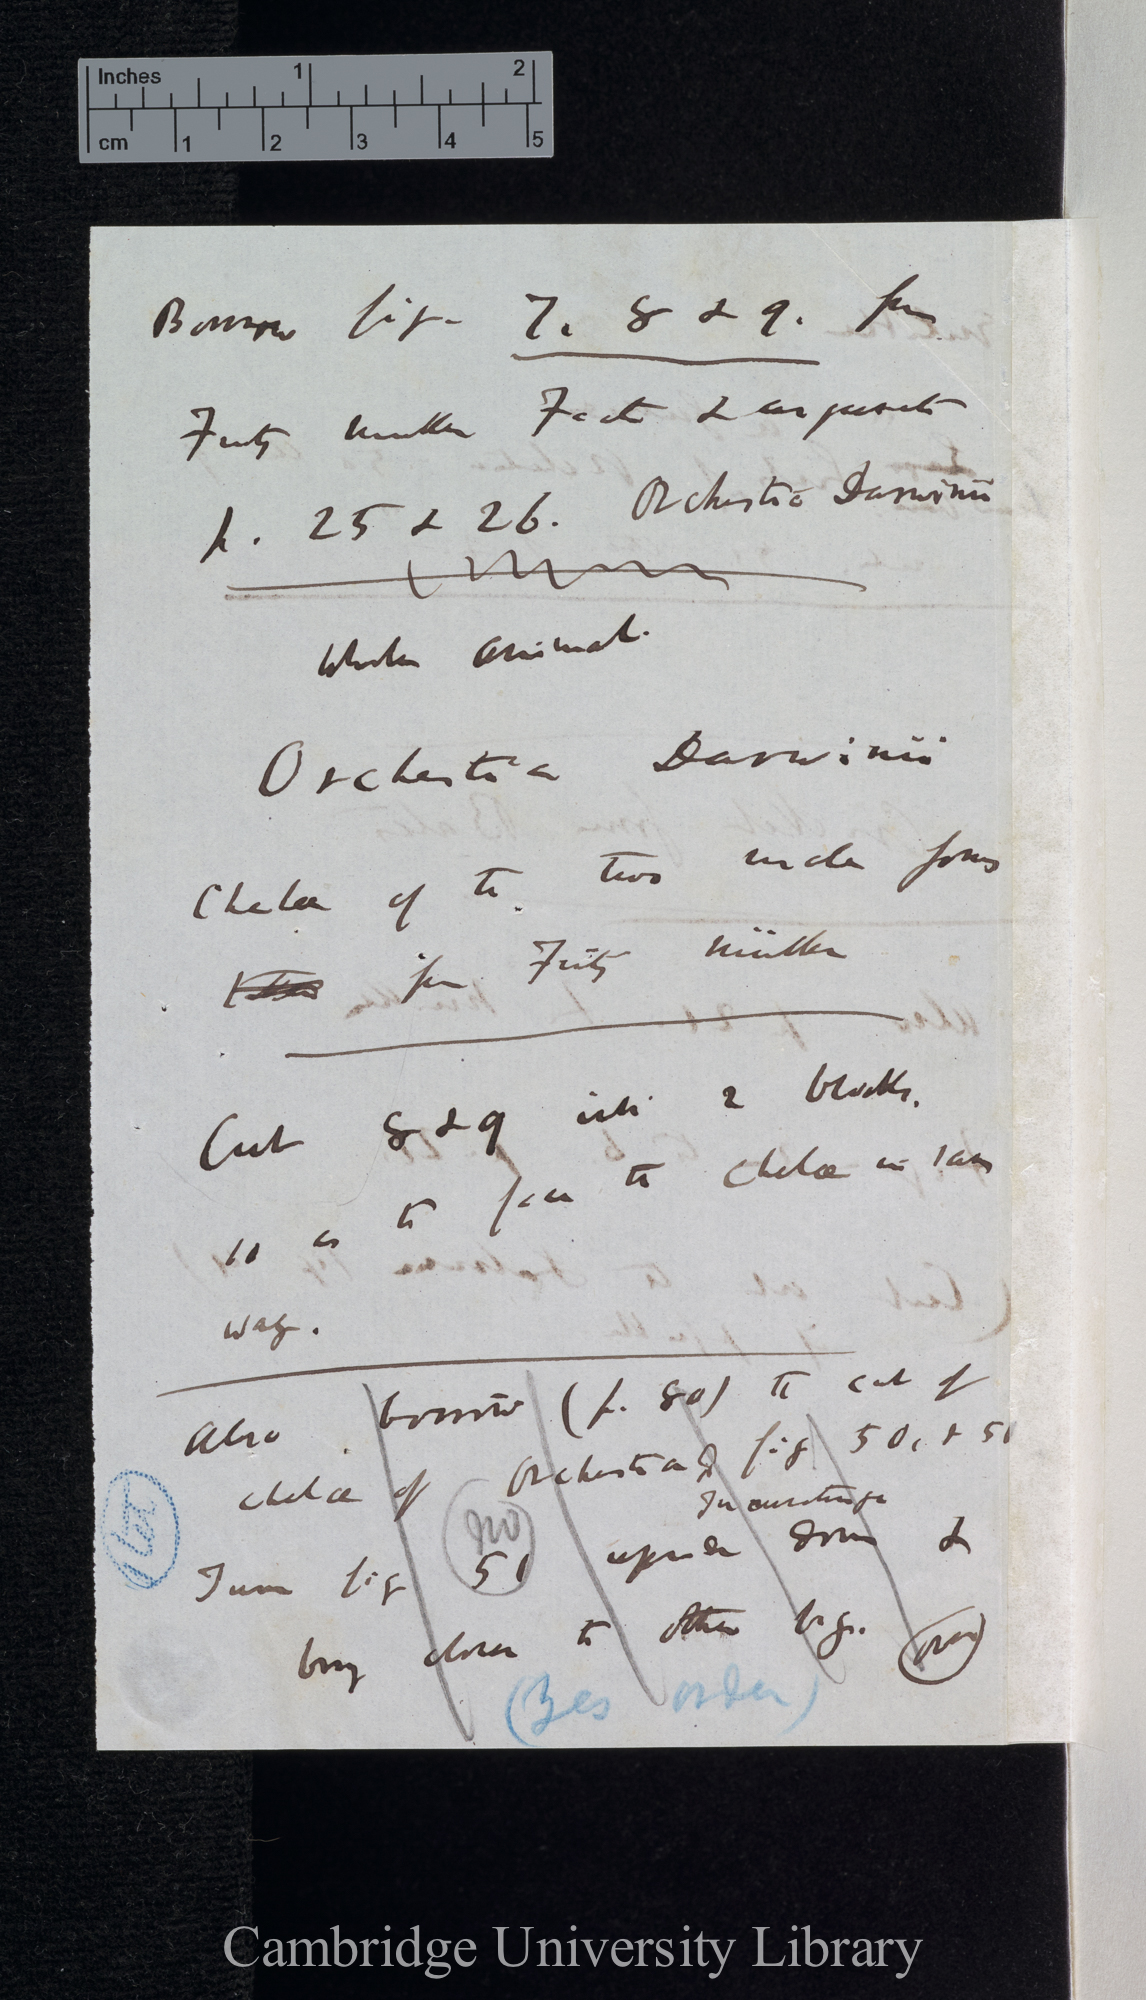 Inches 1 2
cm 1 2 3 4 5
Borrow fig. 7. 8 & 9. from
Fritz Muller Facts & arguments
p. 25 & 26. Orchestia Darwinii
Whole animal.
Orchestia Darwinii
Chelae of the two male forms
from Fritz Müller
Cut 8 & 9 into 2 blocks.
so as to face the chelae in same
way.
Also borrow (p. 80) the cut of
chelae of Orchestia fig 50, & 51
Turn fig 51 upside down &
bring closer to other fig. (over)
no
(Yes order)
Cambridge University Library